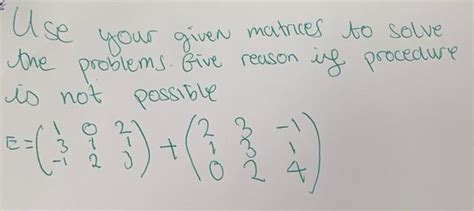 Use your given matrices to solve
the problems. Give reason if procedure
is not possible
E = (1 0 2 3 1 1 -1 2 3) + (2 3 -1 1 3 1 0 2 4)